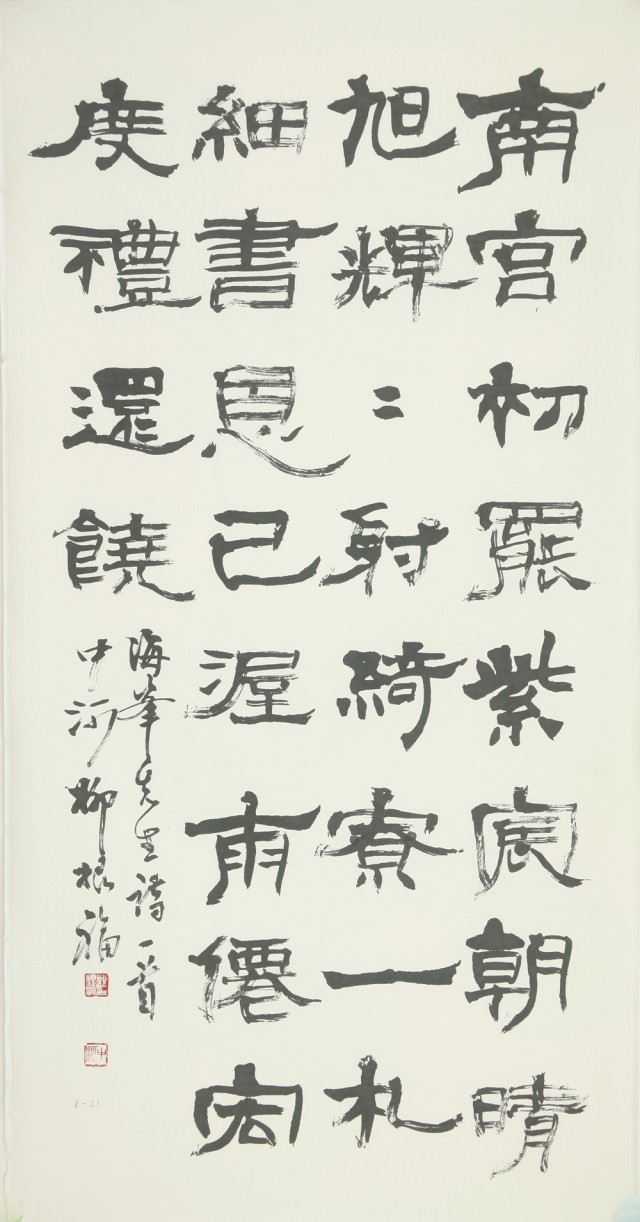 南宮初罷紫宸朝晴
旭輝〻射綺寮一札
細書恩已渥僊宏
度禮還饒
海峯先生詩一首
中河柳根福
8-21